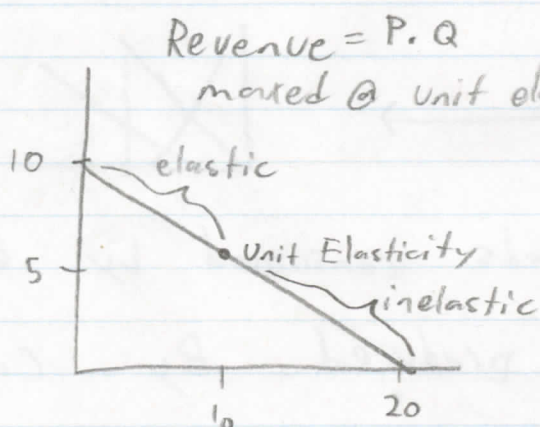 Revenue = P. Q
maxed @ unit el
10
elastic
5
Unit Elasticity
inelastic
10
20